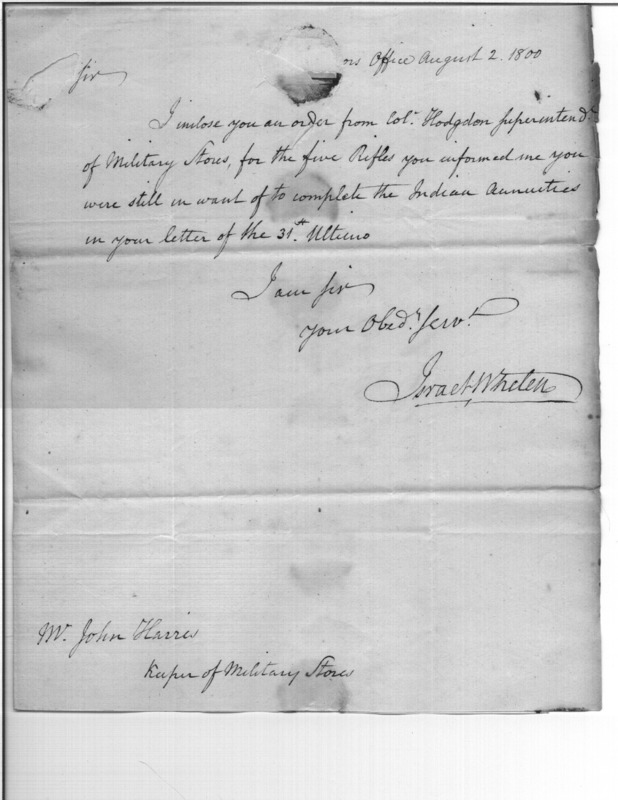 Office August 2. 1800
Sir
I inclose you an order from Col. Hodgdon Superintendt.
of Military Stores, for the five Rifles you informed me you
were still in want of to complete the Indian Annuities
in your letter of the 31st. Ultimo
I am Sir
your Obedt. Servt.
Israel Whelen
Mr. John Harris
Keeper of Military Stores